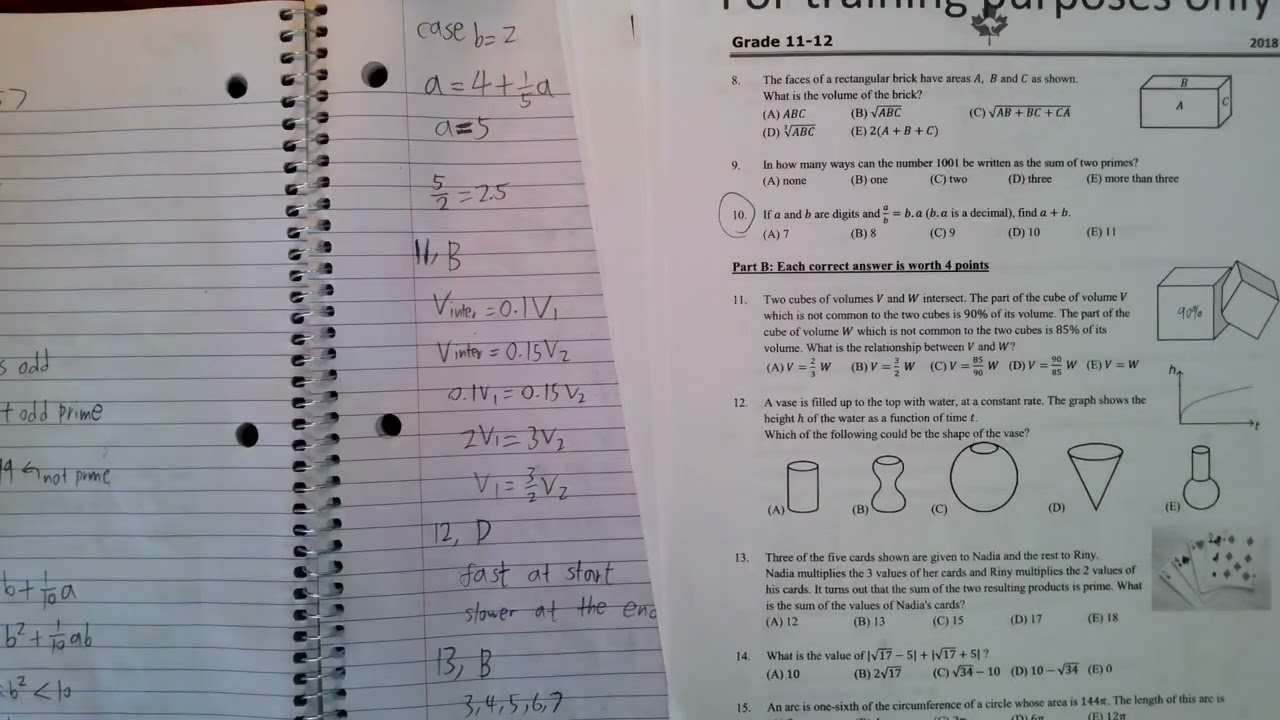 57
s odd
t odd prime
not prime
b+1/10 a
b²+1/10 ab
b²<10
case b=2
a=4+1/5 a
a=5
5/2=2.5
11, B
Vinter=0.1V₁
Vinter=0.15V₂
0.1V₁=0.15V₂
2V₁=3V₂
V₁=3/2 V₂
12, D
fast at start
slower at the end
13, B
3,4,5,6,7
For training purposes only
Grade 11-12
2018
8. The faces of a rectangular brick have areas A, B and C as shown.
What is the volume of the brick?
(A) ABC (B) √ABC (C) √AB + BC + CA
(D) ∛ABC (E) 2(A + B + C)
B
A
C
9. In how many ways can the number 1001 be written as the sum of two primes?
(A) none (B) one (C) two (D) three (E) more than three
10. If a and b are digits and a/b = b.a (b.a is a decimal), find a + b.
(A) 7 (B) 8 (C) 9 (D) 10 (E) 11
Part B: Each correct answer is worth 4 points
11. Two cubes of volumes V and W intersect. The part of the cube of volume V
which is not common to the two cubes is 90% of its volume. The part of the
cube of volume W which is not common to the two cubes is 85% of its
volume. What is the relationship between V and W?
(A) V = 2/3 W (B) V = 3/2 W (C) V = 85/90 W (D) V = 90/85 W (E) V = W
90%
12. A vase is filled up to the top with water, at a constant rate. The graph shows the
height h of the water as a function of time t.
Which of the following could be the shape of the vase?
h
t
(A) (B) (C) (D) (E)
13. Three of the five cards shown are given to Nadia and the rest to Riny.
Nadia multiplies the 3 values of her cards and Riny multiplies the 2 values of
his cards. It turns out that the sum of the two resulting products is prime. What
is the sum of the values of Nadia's cards?
(A) 12 (B) 13 (C) 15 (D) 17 (E) 18
14. What is the value of |√17 − 5| + |√17 + 5| ?
(A) 10 (B) 2√17 (C) √34 − 10 (D) 10 − √34 (E) 0
15. An arc is one-sixth of the circumference of a circle whose area is 144π. The length of this arc is
(D) 6π (E) 12π